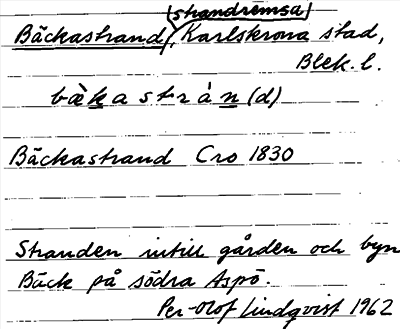 strandremsa
Bäckastrand, Karlskrona stad,
Blek. l.
bàkastràn(d)
Bäckastrand Cro 1830
Stranden intill gården och byn
Bäck på södra Aspö.
Per-Olof Lindqvist 1962